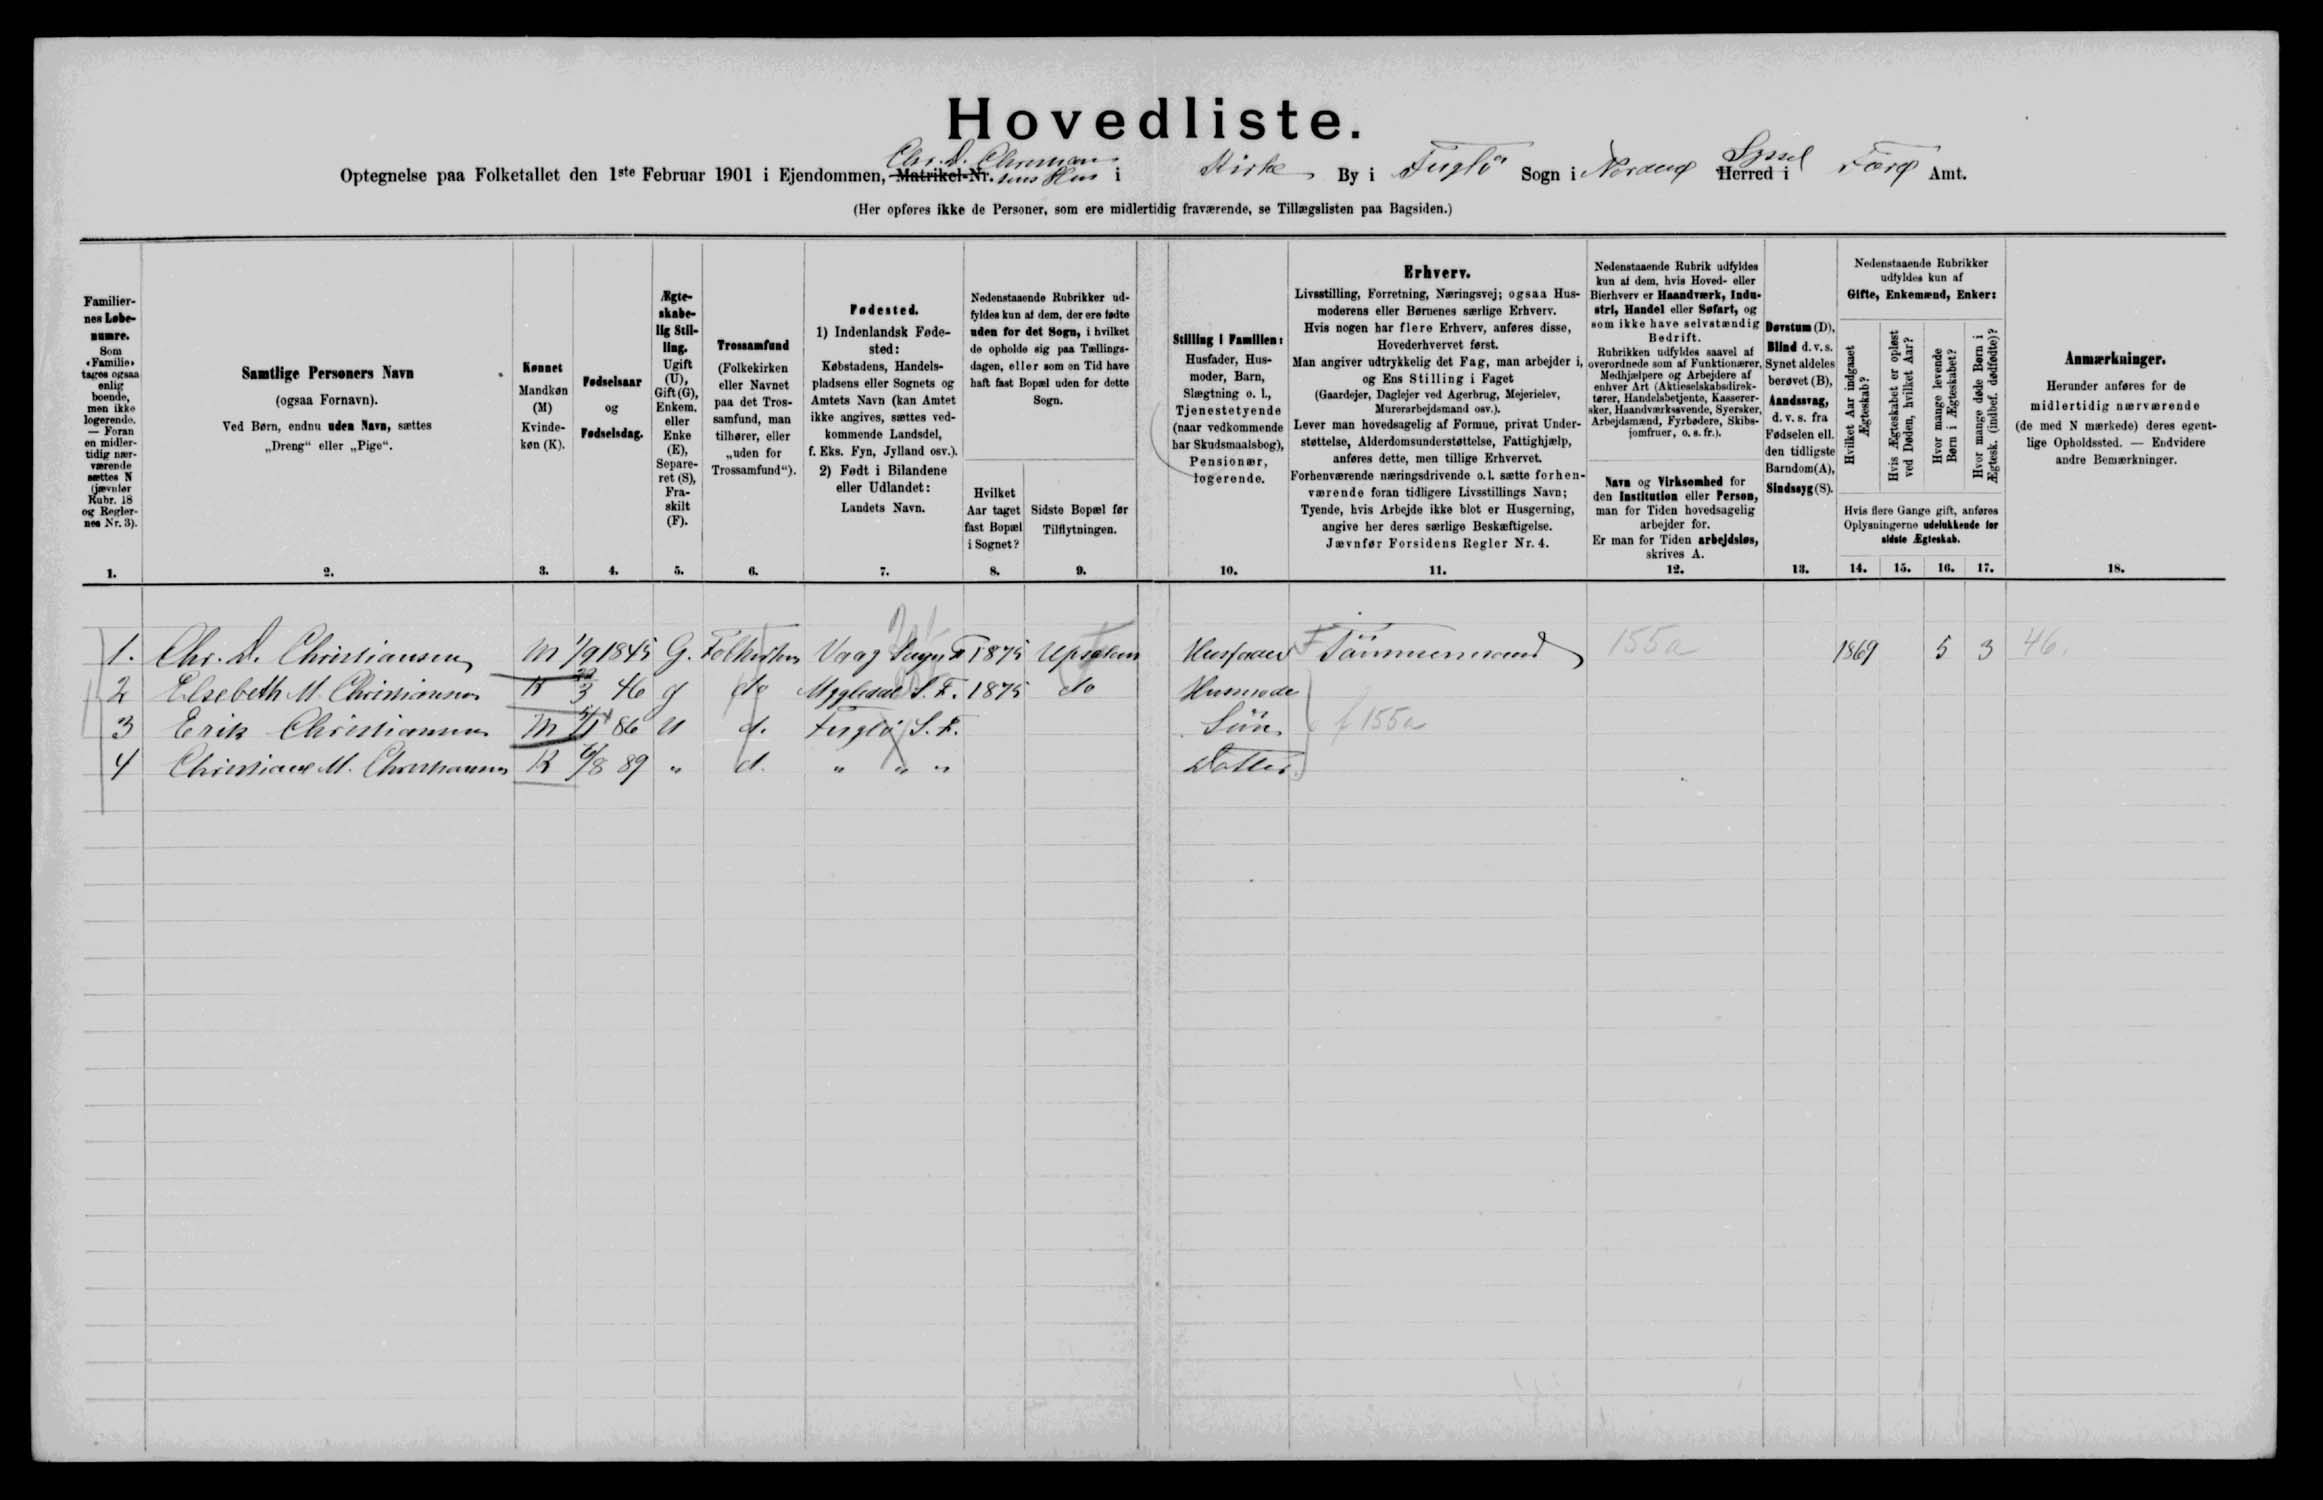 Hovedliste.
Optegnelse paa Folketallet den 1ste Februar 1901 i Ejendommen, Matrikel-Nr. Chr. D. Christiansens Hus i Kirke By i Fuglö Sogn i Norderø Herred i Syssel Færø Amt.
(Her opføres ikke de Personer, som ere midlertidig fraværende, se Tillægslisten paa Bagsiden.)
Familier-
nes Løbe-
numre.
Som
«Familie»
tages ogsaa
enlig
boende,
men ikke
logerende.
— Foran
en midler-
tidig nær-
værende
sættes N
(jævnfør
Rubr. 18
og Regler-
nes Nr. 3).
1.
Samtlige Personers Navn
(ogsaa Fornavn).
Ved Børn, endnu uden Navn, sættes
„Dreng“ eller „Pige“.
2.
Kønnet
Mandkøn
(M)
Kvinde-
køn (K).
3.
Fødselsaar
og
Fødselsdag.
4.
Ægte-
skabe-
lig Stil-
ling.
Ugift
(U),
Gift (G),
Enkem.
eller
Enke
(E),
Separe-
ret (S),
Fra-
skilt
(F).
5.
Trossamfund
(Folkekirken
eller Navnet
paa det Tros-
samfund, man
tilhører, eller
„uden for
Trossamfund“).
6.
Fødested.
1) Indenlandsk Føde-
sted:
Købstadens, Handels-
pladsens eller Sognets og
Amtets Navn (kan Amtet
ikke angives, sættes ved-
kommende Landsdel,
f. Eks. Fyn, Jylland osv.).
2) Født i Bilandene
eller Udlandet:
Landets Navn.
7.
Nedenstaaende Rubrikker ud-
fyldes kun af dem, der ere fødte
uden for det Sogn, i hvilket
de opholde sig paa Tællings-
dagen, eller som en Tid have
haft fast Bopæl uden for dette
Sogn.
Hvilket
Aar taget
fast Bopæl
i Sognet?
8.
Sidste Bopæl før
Tilflytningen.
9.
Stilling i Familien:
Husfader, Hus-
moder, Barn,
Slægtning o. l.,
Tjenestetyende
(naar vedkommende
har Skudsmaalsbog),
Pensionær,
logerende.
10.
Erhverv.
Livsstilling, Forretning, Næringsvej; ogsaa Hus-
moderens eller Børnenes særlige Erhverv.
Hvis nogen har flere Erhverv, anføres disse,
Hovederhvervet først.
Man angiver udtrykkelig det Fag, man arbejder i,
og Ens Stilling i Faget
(Gaardejer, Daglejer ved Agerbrug, Mejerielev,
Murerarbejdsmand osv.).
Lever man hovedsagelig af Formue, privat Under-
støttelse, Alderdomsunderstøttelse, Fattighjælp,
anføres dette, men tillige Erhvervet.
Forhenværende næringsdrivende o. l. sætte forhen-
værende foran tidligere Livsstillings Navn;
Tyende, hvis Arbejde ikke blot er Husgerning,
angive her deres særlige Beskæftigelse.
Jævnfør Forsidens Regler Nr. 4.
11.
Nedenstaaende Rubrik udfyldes
kun af dem, hvis Hoved- eller
Bierhverv er Haandværk, Indu-
stri, Handel eller Søfart, og
som ikke have selvstændig
Bedrift.
Rubrikken udfyldes saavel af
overordnede som af Funktionærer,
Medhjælpere og Arbejdere af
enhver Art (Aktieselskabsdirek-
tører, Handelsbetjente, Kasserer-
sker, Haandværkssvende, Syersker,
Arbejdsmænd, Fyrbødere, Skibs-
jomfruer, o. s. fr.).
Navn og Virksomhed for
den Institution eller Person,
man for Tiden hovedsagelig
arbejder for.
Er man for Tiden arbejdsløs,
skrives A.
12.
Døvstum (D),
Blind d. v. s.
Synet aldeles
berøvet (B),
Aandssvag,
d. v. s. fra
Fødselen ell.
den tidligste
Barndom (A),
Sindssyg (S).
13.
Nedenstaaende Rubrikker
udfyldes kun af
Gifte, Enkemænd, Enker:
Hvilket Aar indgaaet
Ægteskab?
Hvis Ægteskabet er opløst
ved Døden, hvilket Aar?
Hvor mange levende
Børn i Ægteskabet?
Hvor mange døde Børn i
Ægtesk. (indbef. dødfødte)?
Hvis flere Gange gift, anføres
Oplysningerne udelukkende for
sidste Ægteskab.
14. 15. 16. 17.
Anmærkninger.
Herunder anføres for de
midlertidig nærværende
(de med N mærkede) deres egent-
lige Opholdssted. — Endvidere
andre Bemærkninger.
18.
1. Chr. D. Christiansen M 1/9 1845 G. Folkekirken Vaag Sogn F 1875 Upsalum Husfader Tömmermand 155a 1869 5 3 46.
2 Elsebeth M. Christiansen K 3 46 g do S. F. 1875 do Husmoder
3 Erik Christiansen M 86 U d. Fuglö S. F. Sön f 155a
4 Christiane M. Christiansen K 6/8 89 " d. " " " Datter